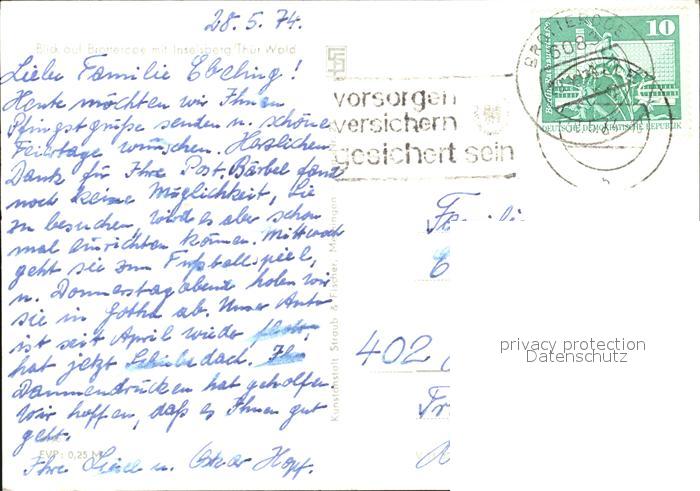 28.5.74.
Blick auf Brotterode mit Inselsberg/Thür Wald
Liebe Familie Ebeling!
Heute möchten wir Ihnen
Pfingstgrüße senden u. schöne
Feiertage wünschen. Herzlichen
Dank für Ihre Post. Bärbel fand
noch keine Möglichkeit, Sie
zu besuchen, wird es aber schon
mal einrichten können. Mittwoch
geht sie zum Fußballspiel,
u. Donnerstagabend holen wir
sie in Gotha ab. Unser Auto
ist seit April wieder
hat jetzt Schiebedach. Ihr
Daumendrücken hat geholfen
Wir hoffen, daß es Ihnen gut
geht.
EVP: 0,25 M
Ihre Liesel u. Oskar Hopf.
Kunstanstalt Straub & Fischer, Meiningen
vorsorgen
versichern
gesichert sein
BROTTERODE
608
10
DEUTSCHE DEMOKRATISCHE REPUBLIK
Fam.
E
402
Tr
privacy protection
Datenschutz